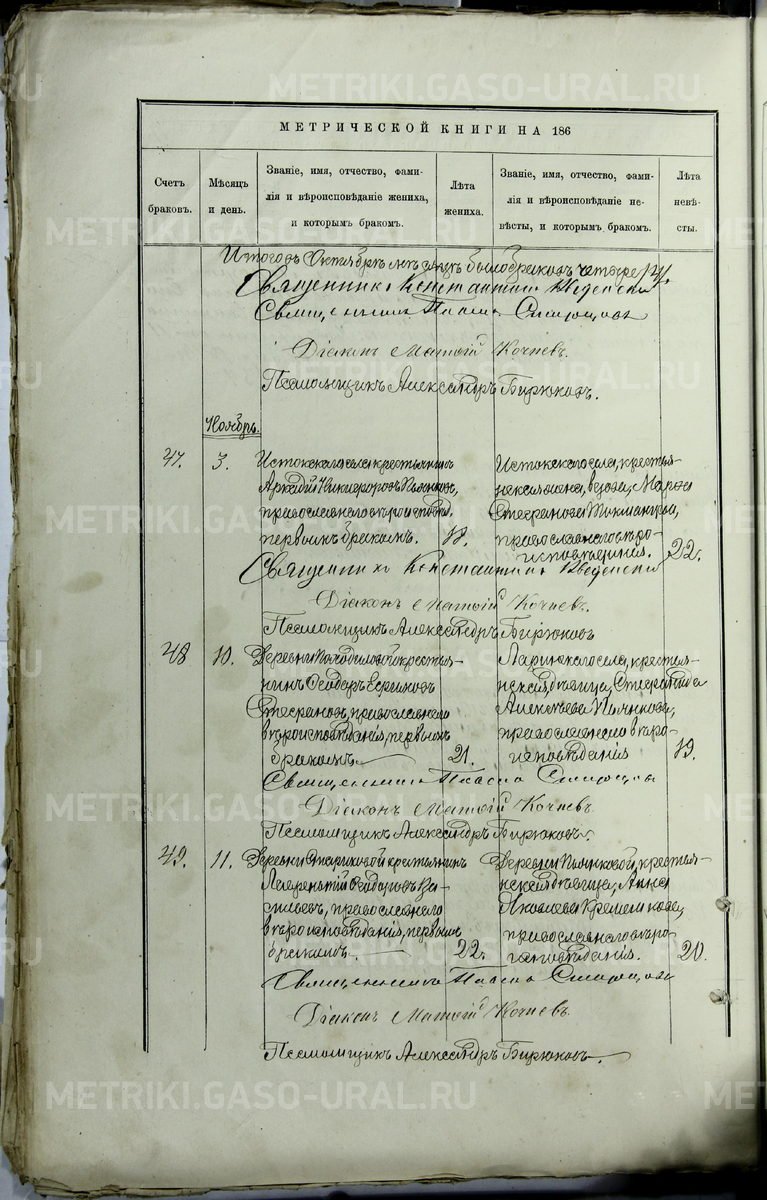 МЕТРИЧЕСКОЙ КНИГИ НА 186
Счетъ браковъ.
Мѣсяцъ и день.
Званіе, имя, отчество, фами-
лія и вѣроисповѣданіе жениха,
и которымъ бракомъ.
Лѣта жениха.
Званіе, имя, отчество, фами-
лія и вѣроисповѣданіе не-
вѣсты, и которымъ бракомъ.
Лѣта невѣ-
сты.
Итого въ Октябрѣ мѣсяцѣ было браковъ четыре
Священникъ Константинъ Введенскій
Священникъ Павелъ
Діаконъ Матфій Кочневъ.
Псаломщикъ Александръ Бирюковъ.
Ноябрь.
47.
3.
Истокскаго села крестьянинъ
Аркадій Никифоровъ Пьянковъ,
православнаго вѣроисповѣд.
первымъ бракомъ.
18.
Истокскаго села, крестья-
нская жена, вдова, Марѳа
Стефанова
православнаго вѣро-
исповѣданія.
22.
Священникъ Константинъ Введенскій
Діаконъ Матфій Кочневъ.
Псаломщикъ Александръ Бирюковъ
48
10.
Деревни крестья-
нинъ Ѳеодоръ Ефимовъ
Стефановъ, православнаго
вѣроисповѣданія, первымъ
бракомъ.
21.
села, крестья-
нская дѣвица, Стефанида
Алексѣева Пьянкова,
православнаго вѣро-
исповѣданія
19.
Священникъ Павелъ
Діаконъ Матфій Кочневъ.
Псаломщикъ Александръ Бирюковъ.
49.
11.
Деревни крестьянинъ
Лаврентій Ѳеодоровъ Ва-
сильевъ, православнаго
вѣроисповѣданія, первымъ
бракомъ.
22.
Деревни Пьянковой, крестья-
нская дѣвица, Анна
Яковлева
православнаго вѣро-
исповѣданія.
20.
Священникъ Павелъ
Діаконъ Матфій Кочневъ.
Псаломщикъ Александръ Бирюковъ.
METRIKI.GASO-URAL.RU